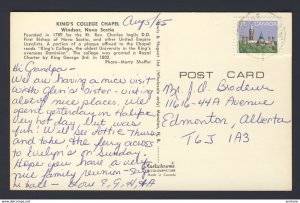 KING'S COLLEGE CHAPEL
Windsor, Nova Scotia
Founded in 1789 by the Rt. Rev. Charles Inglis D.D.
First Bishop of Nova Scotia, and other United Empire
Loyalists. A portion of plaque affixed to the Chapel
reads "King's College, the oldest University in the King's
overseas dominion". College was granted a Royal
Charter by King George 3rd. in 1802.
Photo—Marty Shaffer
Aug 5/85
Hi Grandpa!
We are having a nice visit
with Glen's sister - visiting
along nice places. We
spent yesterday in Halifax
hot day, but was
fun! Will see Dottie Thurs
and take the ferry across
to Evelyn's on Sunday.
Hope you have a very
nice family reunion - say
hi to all - Love
POST CARD
Mr. J. O. Brodeur
11616-44A Avenue
Edmonton, Alberta
T6J 1A3
Made in Canada